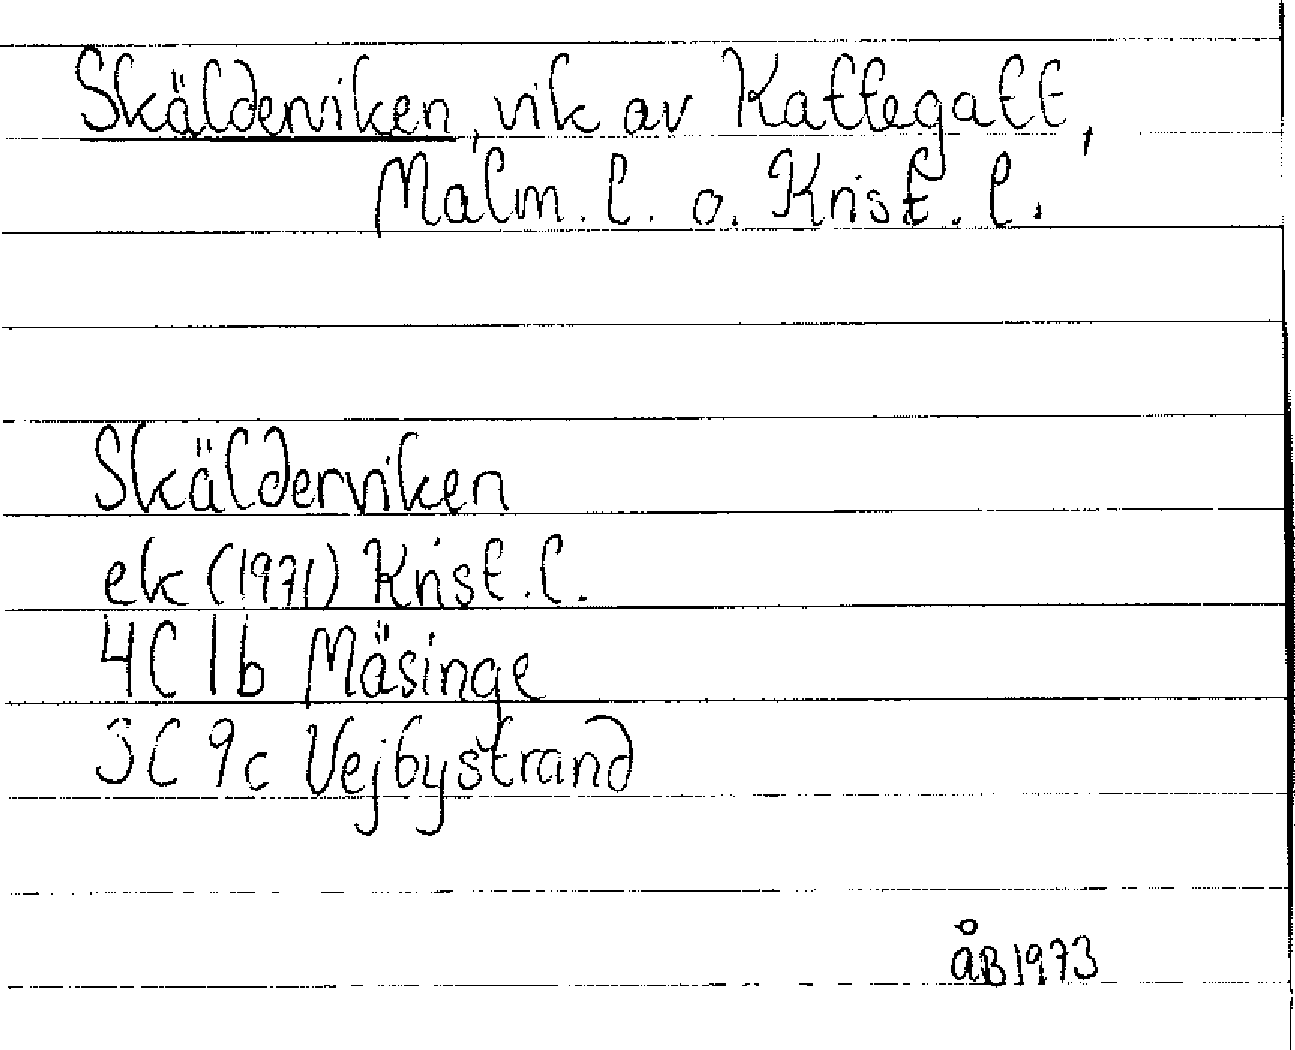 Skälderviken, vik av Kattegatt,
Malm. l. o. Krist. l.
Skälderviken
ek (1971) Krist. l.
4C 1b Mäsinge
3C 9c Vejbystrand
åB 1973